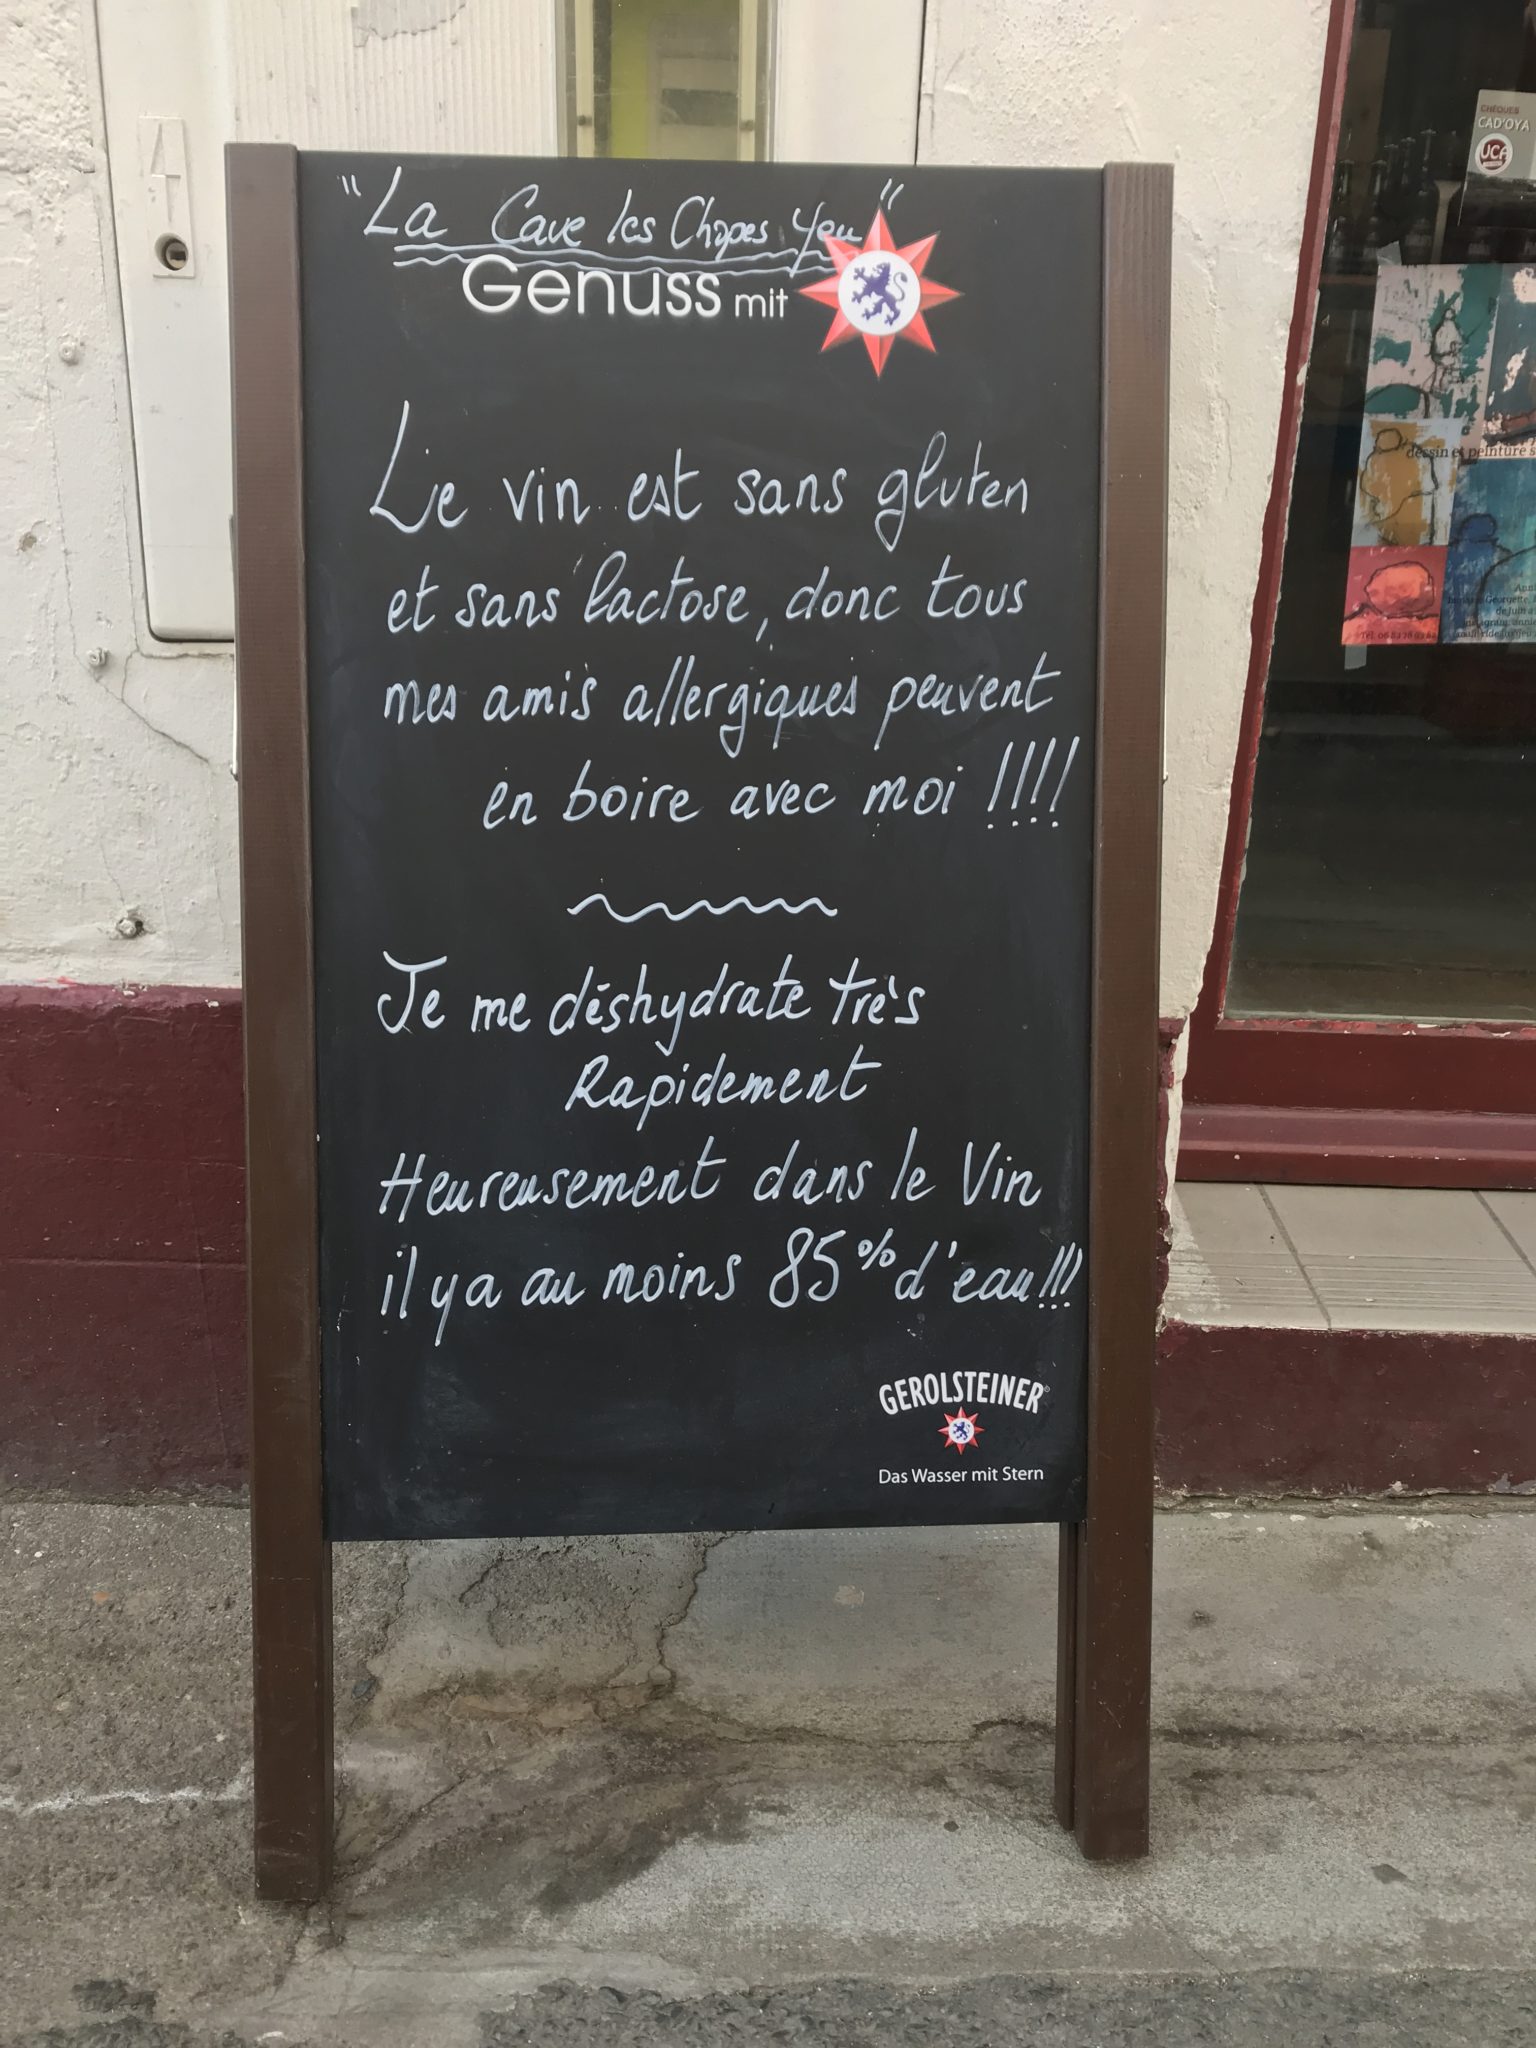 "La Cave les Chopes Yeu"
Genuss mit
Le vin est sans gluten
et sans lactose, donc tous
mes amis allergiques peuvent
en boire avec moi !!!!
Je me déshydrate très
Rapidement
Heureusement dans le Vin
il y a au moins 85% d'eau!!!
GEROLSTEINER
Das Wasser mit Stern
CHÈQUES
CAD'OYA
UCA
dessin et peinture s